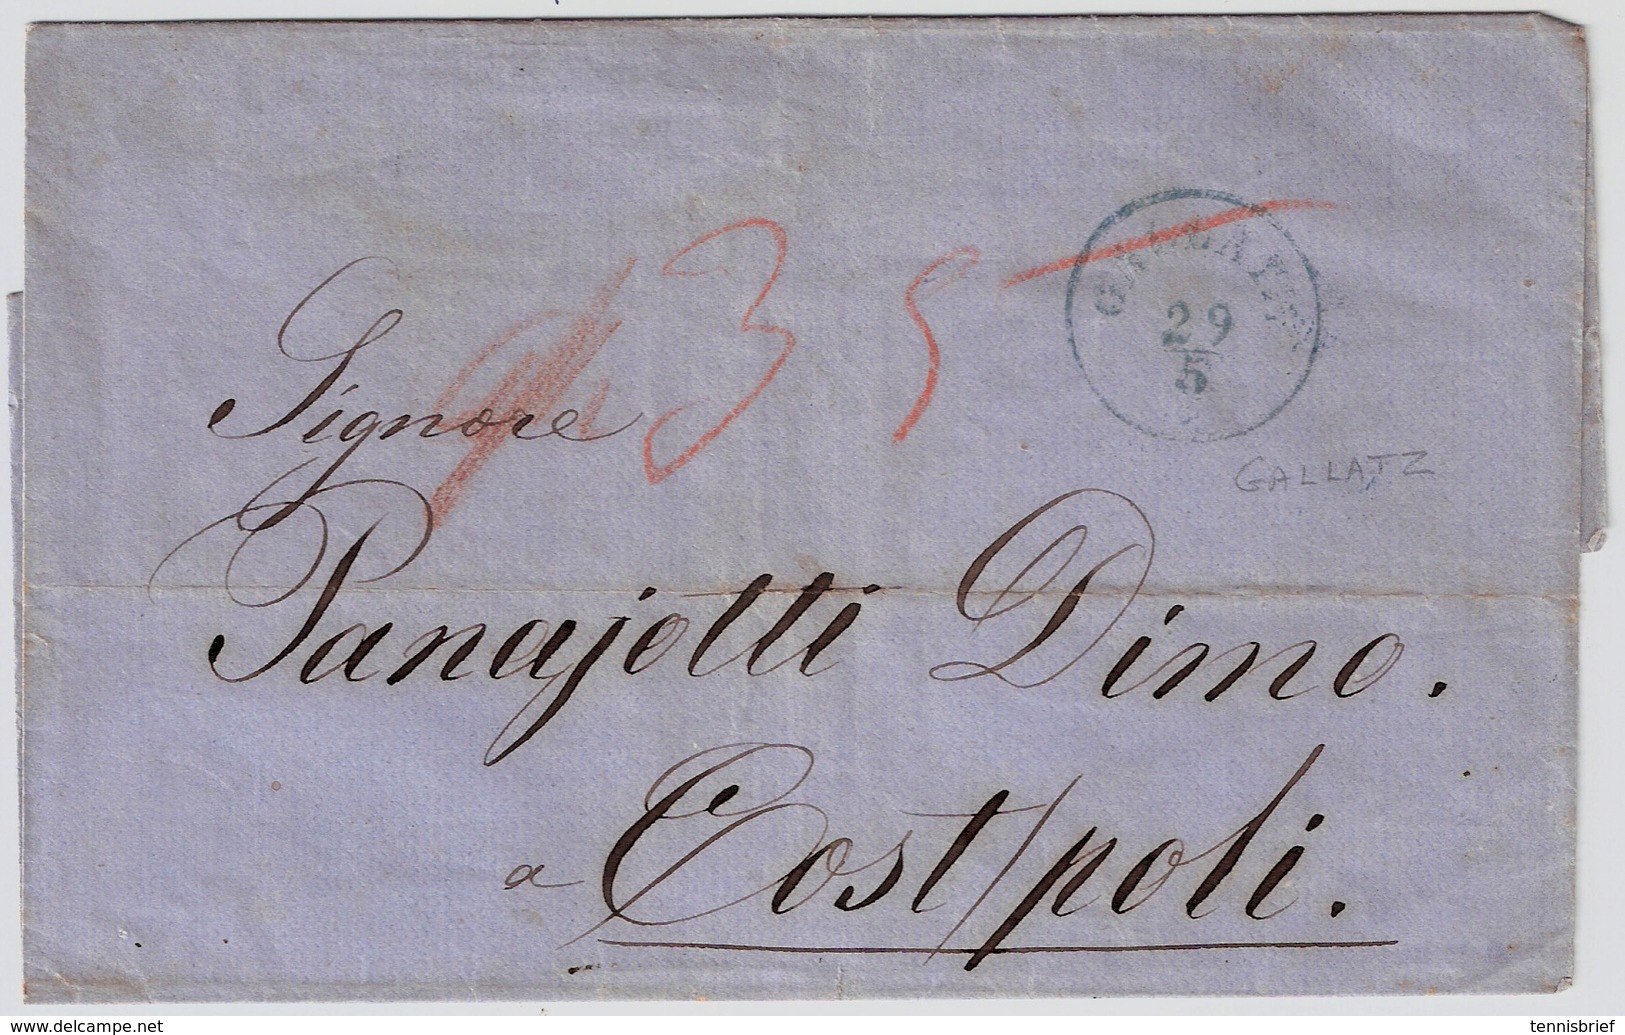 GALLATZ
29
5
35
GALLATZ
Signore
Panajotti Dimo.
a Cost/poli.
www.delcampe.net
tennisbrief